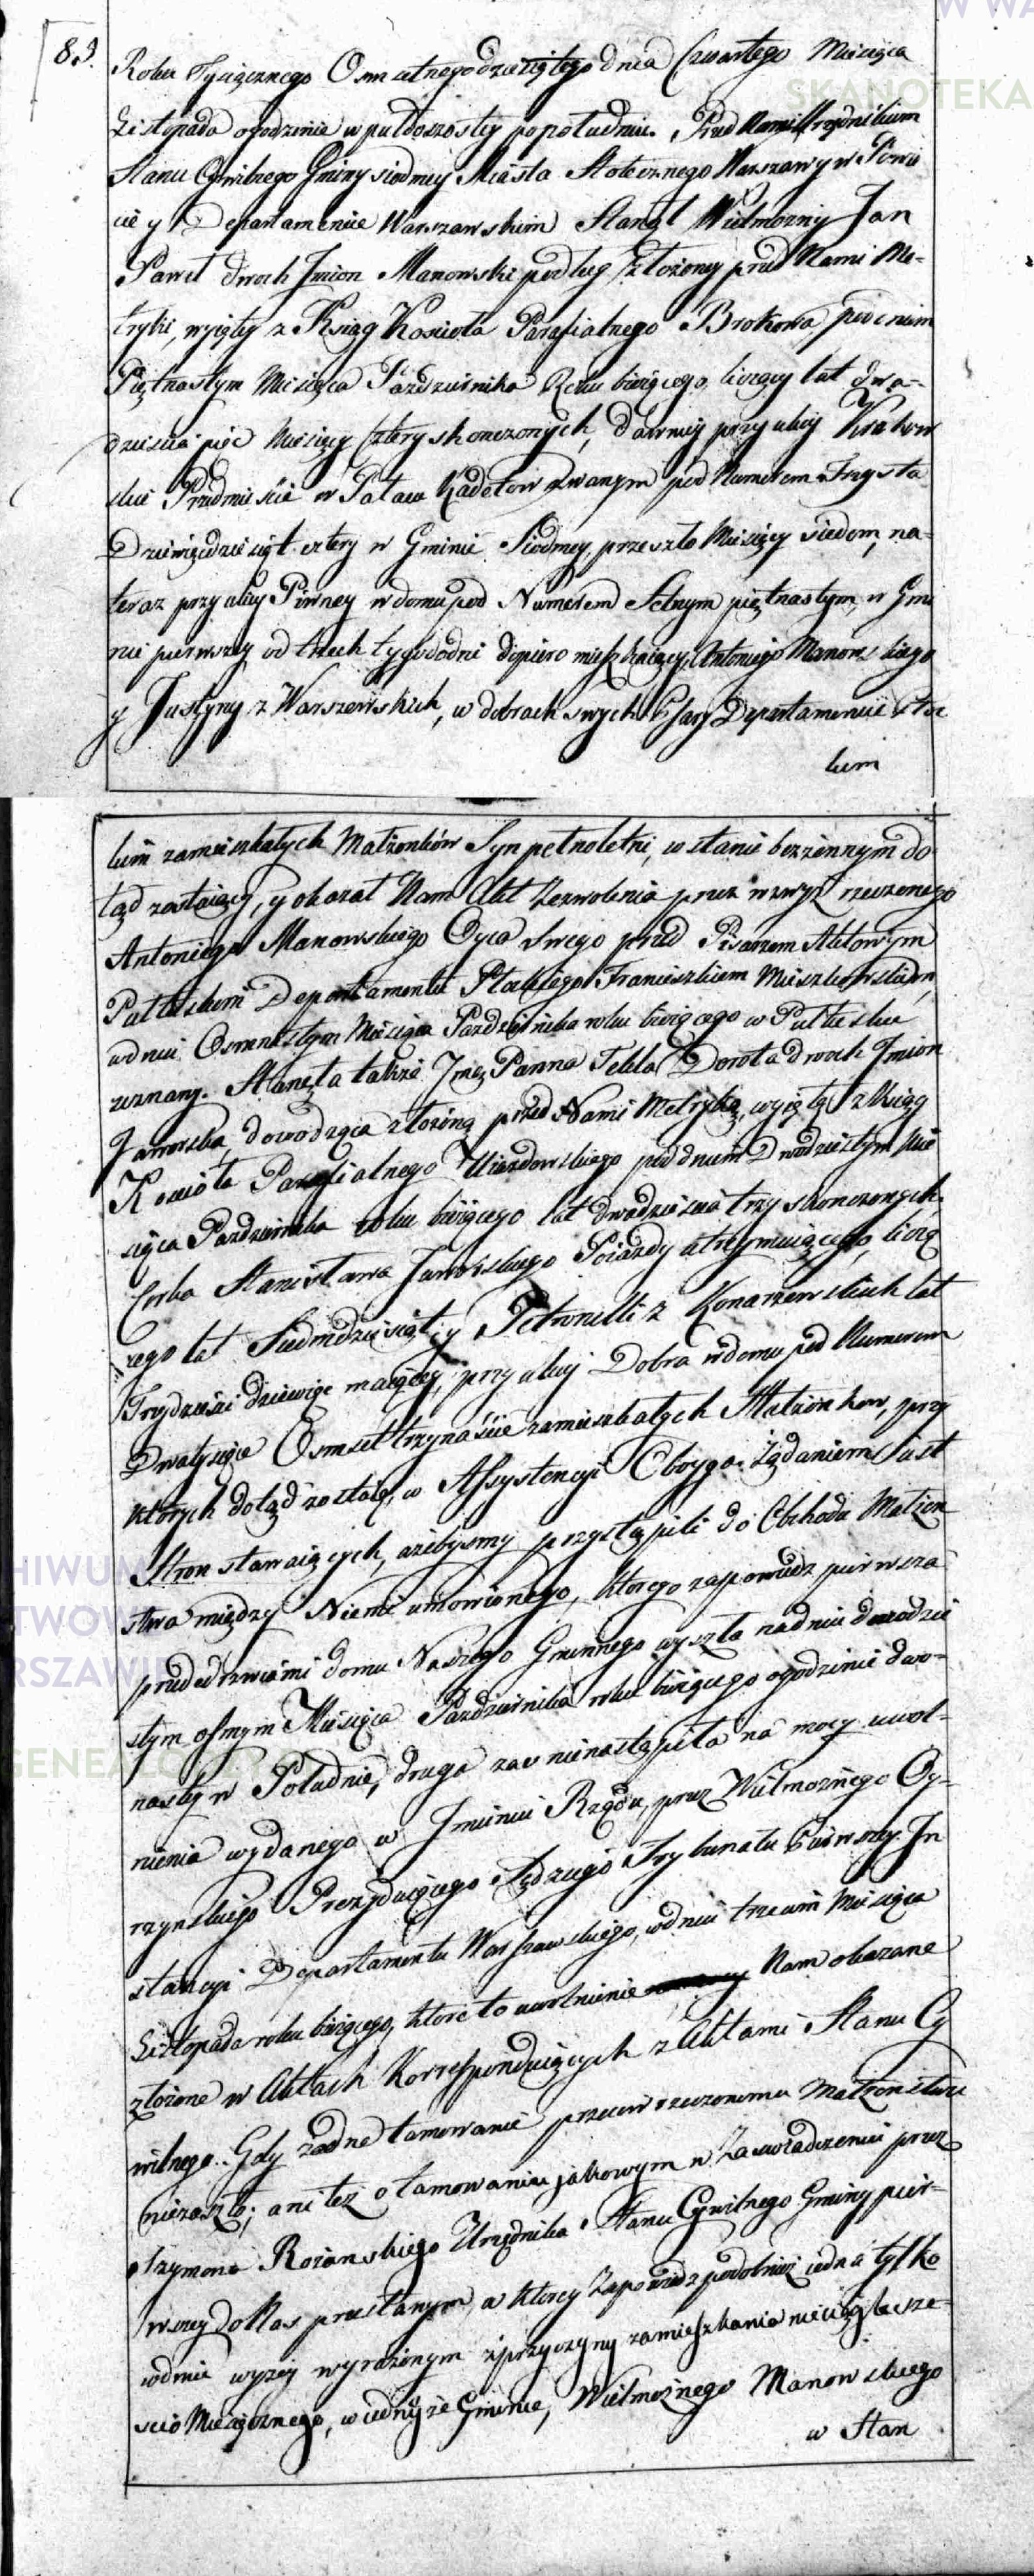 83.
Roku Tysiącznego Osmsetnego dziesiątego dnia Czwartego Miesiąca
Listopada o godzinie w puł do szostey popołudniu. Przed Nami Urzędnikiem
Stanu Cywilnego Gminy siodmey Miasta Stołecznego Warszawy w Powie
cie y Departamencie Warszawskim Stanął Wielmożny Jan
Paweł dwoch Jmion Manowski podług złożoney przed Nami Me-
tryki, wyiętey z Ksiąg Koscioła Parafialnego Brokowa, pod dniem
Piętnastym Miesiąca Pazdziernika Roku bieżącego, liczący lat dwa-
dziescia pięc Miesięcy Cztery skonczonych, dawniey przy ulicy Krakow
skie Przedmieście w Pałacu Kadetow zwanym pod Numerem Trzysta
Dziewięcdziesiąt cztery w Gminie Siodmey, przeszło Miesięcy siedem, na-
teraz przy ulicy Piwney w domu pod Numerem Setnym piętnastym, w Gmi
nie pierwszey od trzech tygodni dopiero mieszkaiący, Antoniego Manowskiego
y Justyny z Warszewskich, w dobrach swych Departamencie Płoc
kim
kim zamieszkałych Małżonków Syn pełnoletni, w stanie bezżennym do
tąd zostaiący, y okazał Nam Akt Zezwolenia przez wzwyż rzeczonego
Antoniego Manowskiego Oyca swego przed Pisarzem Aktowym
Pułtuskim Departamentu Płockiego Franciszkiem Mieszkowskim,
w dniu Osmnastym Miesiąca Pazdziernika roku bieżącego w Pułtusku
zeznany. Stanęła także Jmć Panna Tekla Dorota dwoch Jmion
Jaworska, dowodząca złożoną przed Nami Metryką, wyiętą z Ksiąg
Koscioła Parafialnego Uiazdowskiego pod dniem Dwudziestym Mie
siąca Pazdziernika roku bieżącego lat dwadziescia trzy skonczonych,
Corka Stanisława Jaworskiego Poiazdy utrzymuiącego, liczą
cego lat Siedmdziesiąt, y Petronelli z Konarzewskich lat
Trzydzieści dziewięc maiącey, przy ulicy Dobra w domu pod Numerem
Dwatysiące Osmset trzynaście zamieszkałych Małżonkow, przy
ktorych dotąd zostaie, w Assystencyi Oboyga. Żądaniem iest
Stron stawaiących, ażebysmy przystąpili do Obchodu Małżen
stwa między Niemi umowionego, ktorego zapowiedz pierwsza
przed drzwiami domu Naszego Gminnego wyszła na dniu dwudzie
stym osmym Miesiąca Pazdziernika roku bieżącego o godzinie dwu-
nastey w Południe, druga zas nienastąpiła na mocy uwol-
nienia wydanego w Jmieniu Rządu, przez Wielmożnego Oy-
rzynskiego Prezyduiącego Sędziego Trybunału Pierwszey In
stancyi Departamentu Warszawskiego, w dniu trzecim Miesiąca
Listopada roku bieżącego, ktore to uwolnienie Nam okazane
złożone w Aktach Korrespondujących z Aktami Stanu Cy
wilnego. Gdy żadne tamowanie przeciw rzeczonemu Małżenstwu
niezaszło; ani też o tamowaniu jakowym w Zaswiadczeniu przez
Szymona Rożanskiego Urzędnika Stanu Cywilnego Gminy pier-
wszey do Nas przesłanym, a ktorey Zapowiedz podobnież iedna tylko
w dniu wyżey wyrażonym z przyczyny zamieszkania nieciągłe sze-
scio Miesięcznego, w iedneyże Gminie, Wielmożnego Manowskiego
w Stan